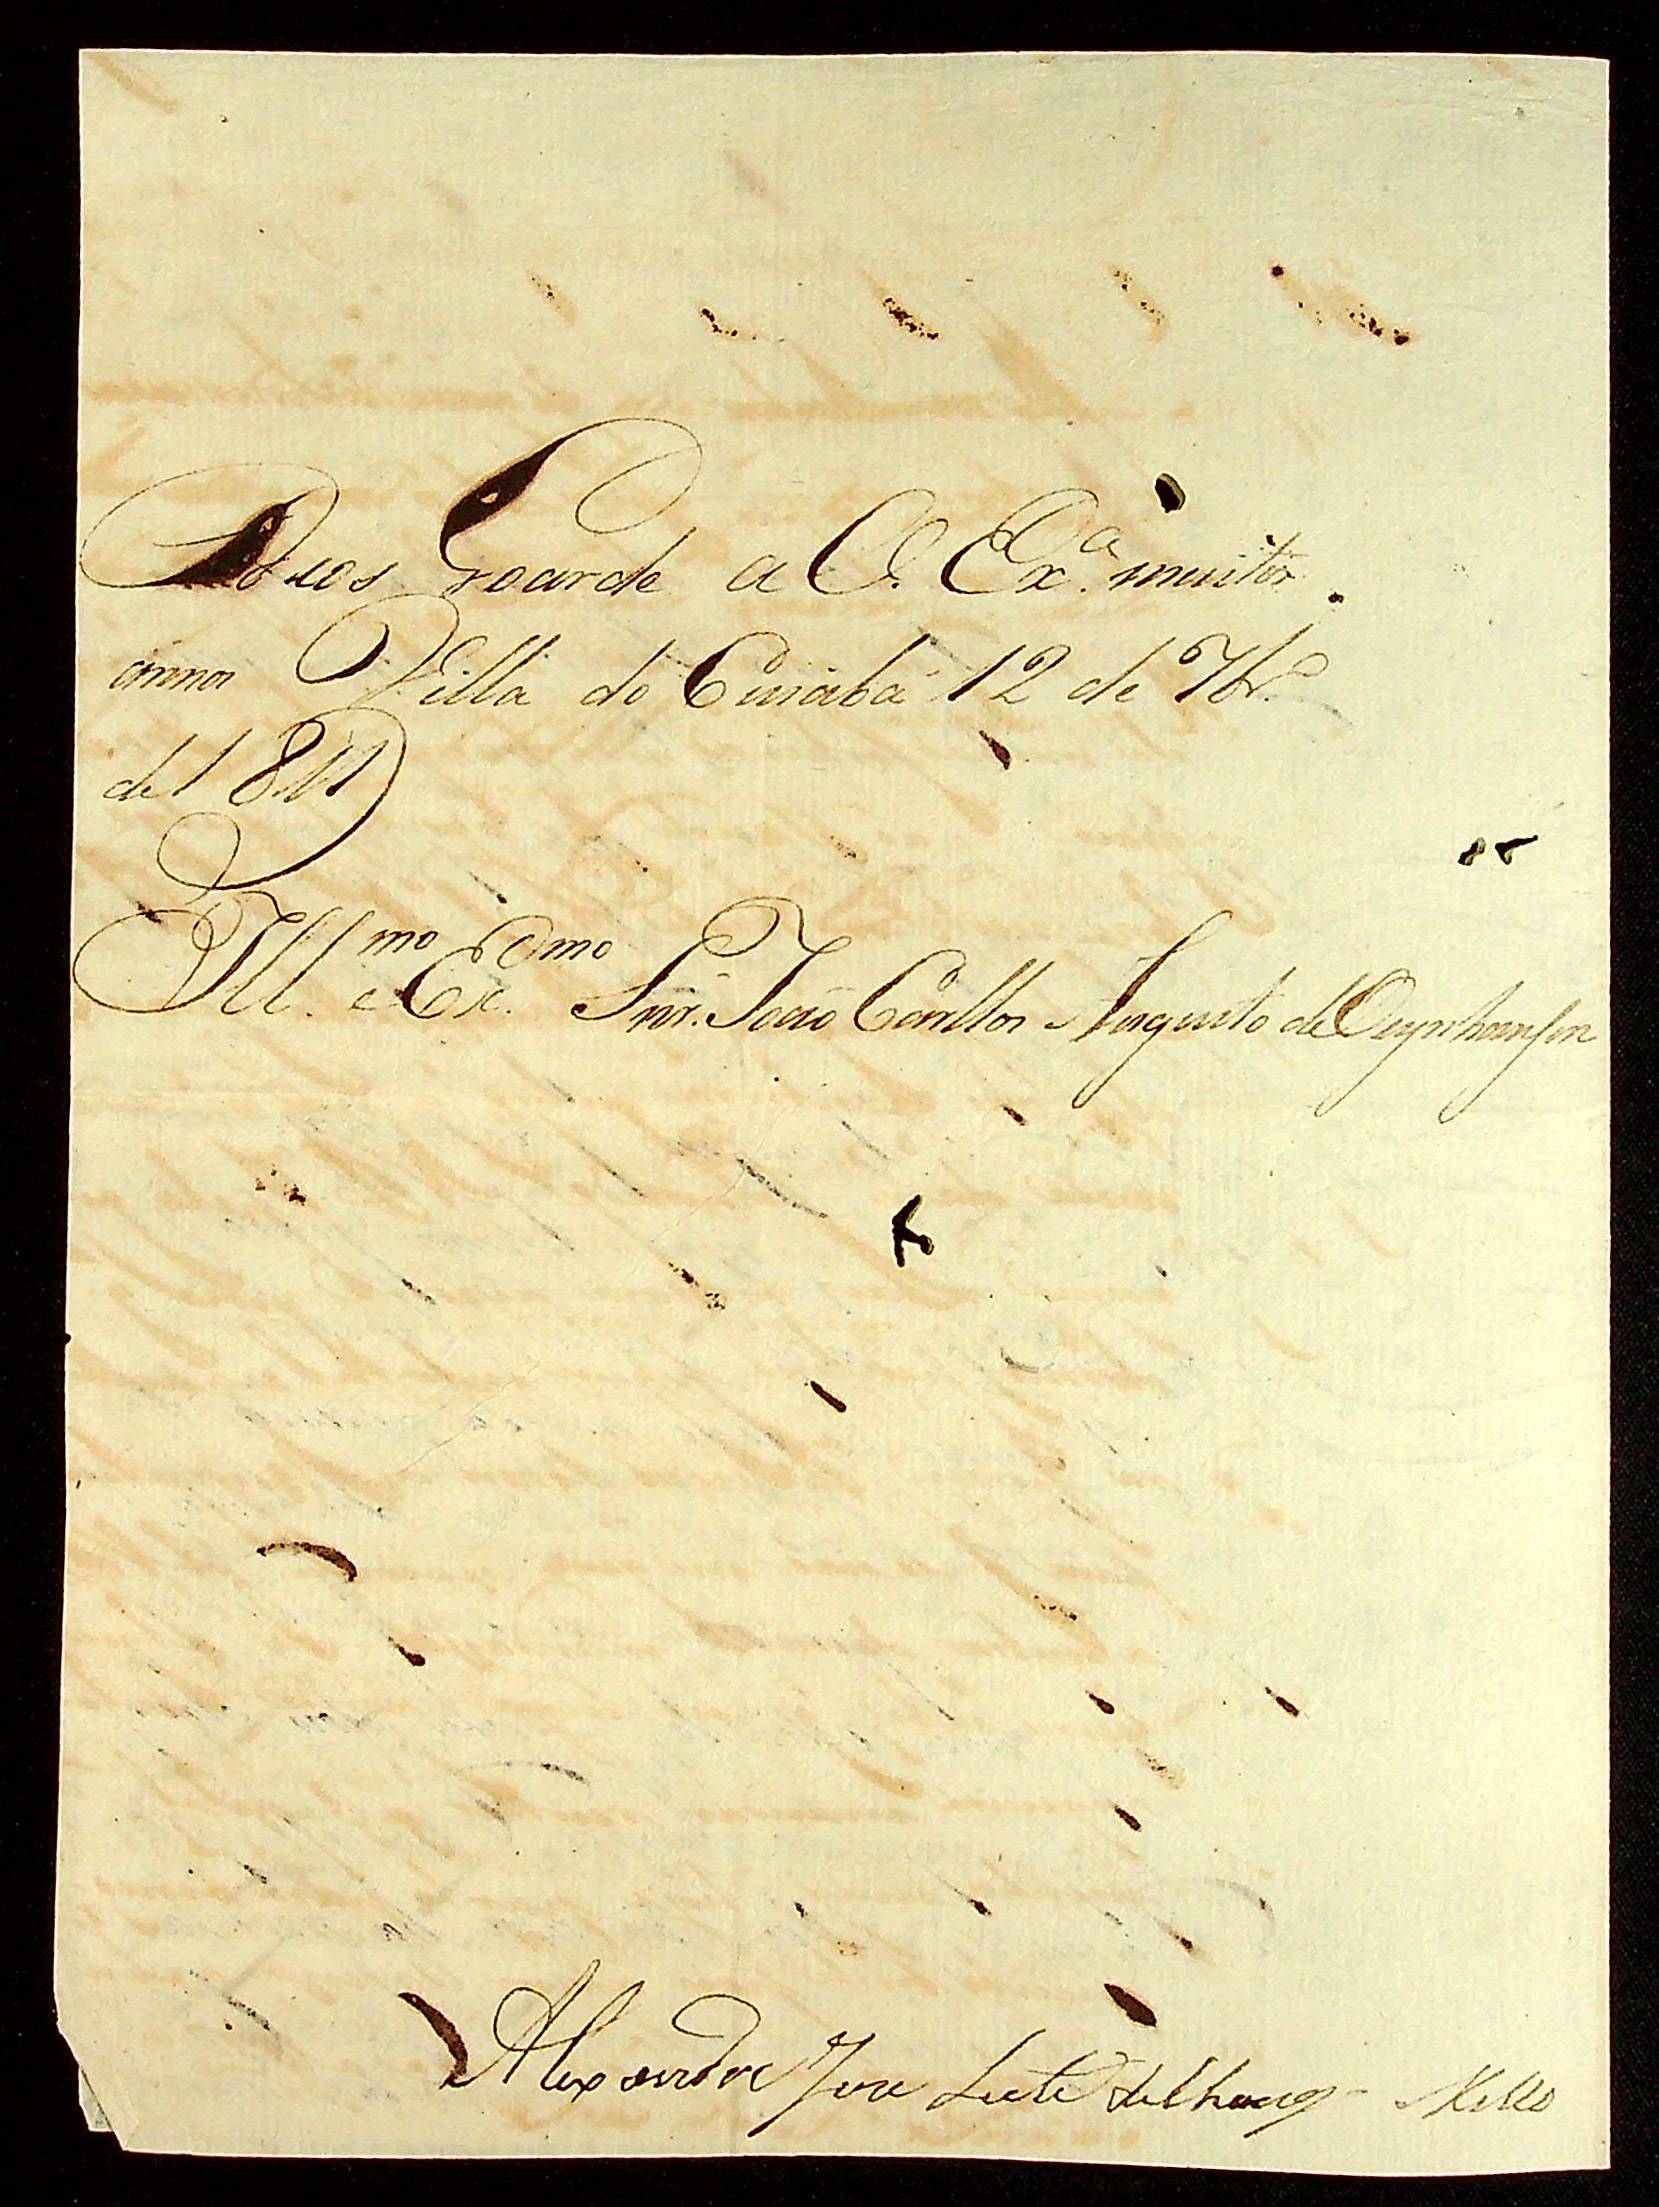 Deos Goarde a V. Ex.ª muitos
annos Villa do Cuiabá 12 de 7br.º
de 1811
Ill.mo e Ex.mo Snr. João Carllos Augusto de Oeynhausen
Alexandre Joze Leite de Chaves Mello